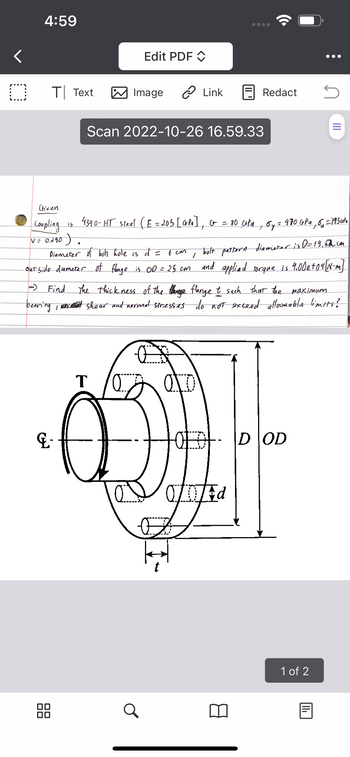 4:59
Edit PDF
T Text Image Link Redact
Scan 2022-10-26 16.59.33
Given
Coupling is 4340-HT steel (E = 205 [GPa], G = 80 GPa, σy = 480 GPa,
V = 0.290).
Diameter of bolt hole is d = 1 cm, bolt pattern diameter is D= cm
outside diameter of flange is OD = 25 cm and applied torque is 9.00e+04[N·m]
→ Find the thickness of the flange t such that the maximum
bearing, shear and normal stresses do not exceed allowable limits?
T
℄
D OD
d
t
1 of 2